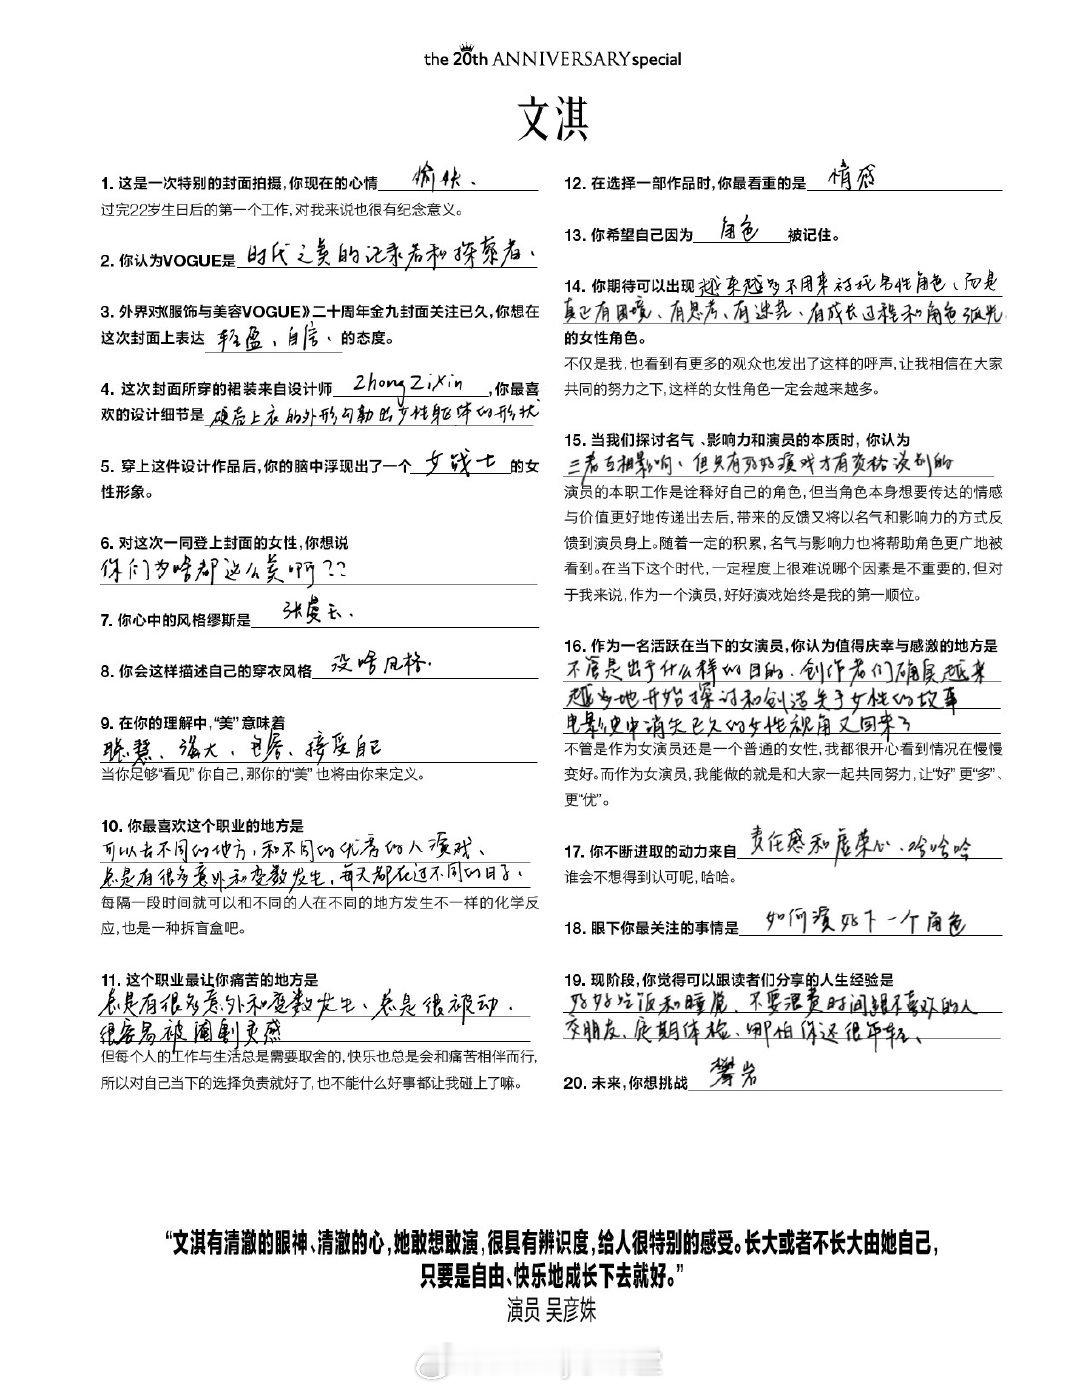 the 20th ANNIVERSARY special
文淇
1. 这是一次特别的封面拍摄,你现在的心情 愉快、
过完22岁生日后的第一个工作,对我来说也很有纪念意义。
2. 你认为VOGUE是 时代之美的记录者和探索者、
3. 外界对《服饰与美容VOGUE》二十周年金九封面关注已久,你想在
这次封面上表达 轻盈、自信、 的态度。
4. 这次封面所穿的裙装来自设计师 Zhong Zixin ,你最喜
欢的设计细节是 硬壳上衣的外形勾勒出女性躯体的形状
5. 穿上这件设计作品后,你的脑中浮现出了一个 女战士 的女
性形象。
6. 对这次一同登上封面的女性,你想说
你们为啥都这么美啊??
7. 你心中的风格缪斯是 张曼玉、
8. 你会这样描述自己的穿衣风格 没啥风格、
9. 在你的理解中,“美”意味着
聪慧、强大、包容、接受自己
当你足够“看见”你自己,那你的“美”也将由你来定义。
10. 你最喜欢这个职业的地方是
可以去不同的地方,和不同的优秀的人演戏、
总是有很多意外和变数发生,每天都在过不同的日子、
每隔一段时间就可以和不同的人在不同的地方发生不一样的化学反
应,也是一种拆盲盒吧。
11. 这个职业最让你痛苦的地方是
总是有很多意外和变数发生、总是很被动、
很容易被 剥夺灵感
但每个人的工作与生活总是需要取舍的,快乐也总是会和痛苦相伴而行,
所以对自己当下的选择负责就好了,也不能什么好事都让我碰上了嘛。
12. 在选择一部作品时,你最看重的是 情感
13. 你希望自己因为 角色 被记住。
14. 你期待可以出现 越来越多不用来衬托男性角色,而是
真正有困境、有思考、有迷茫、有成长过程和角色弧光
的女性角色。
不仅是我,也看到有更多的观众也发出了这样的呼声,让我相信在大家
共同的努力之下,这样的女性角色一定会越来越多。
15. 当我们探讨名气、影响力和演员的本质时,你认为
三者互相影响、但只有好好演戏才有资格谈别的
演员的本职工作是诠释好自己的角色,但当角色本身想要传达的情感
与价值更好地传递出去后,带来的反馈又将以名气和影响力的方式反
馈到演员身上。随着一定的积累,名气与影响力也将帮助角色更广地被
看到。在当下这个时代,一定程度上很难说哪个因素是不重要的,但对
于我来说,作为一个演员,好好演戏始终是我的第一顺位。
16. 作为一名活跃在当下的女演员,你认为值得庆幸与感激的地方是
不管是出于什么样的目的、创作者们确实越来
越多地开始探讨和创造关于女性的故事
电影史中消失已久的女性视角又回来了
不管是作为女演员还是一个普通的女性,我都很开心看到情况在慢慢
变好。而作为女演员,我能做的就是和大家一起共同努力,让“好”更“多”、
更“优”。
17. 你不断进取的动力来自 责任感和虚荣心、哈哈哈
谁会不想得到认可呢,哈哈。
18. 眼下你最关注的事情是 如何演好下一个角色
19. 现阶段,你觉得可以跟读者们分享的人生经验是
好好吃饭和睡觉、不要浪费时间跟不喜欢的人
交朋友、定期体检、哪怕你还很年轻、
20. 未来,你想挑战 攀岩
“文淇有清澈的眼神、清澈的心,她敢想敢演,很具有辨识度,给人很特别的感受。长大或者不长大由她自己,
只要是自由、快乐地成长下去就好。”
演员 吴彦姝